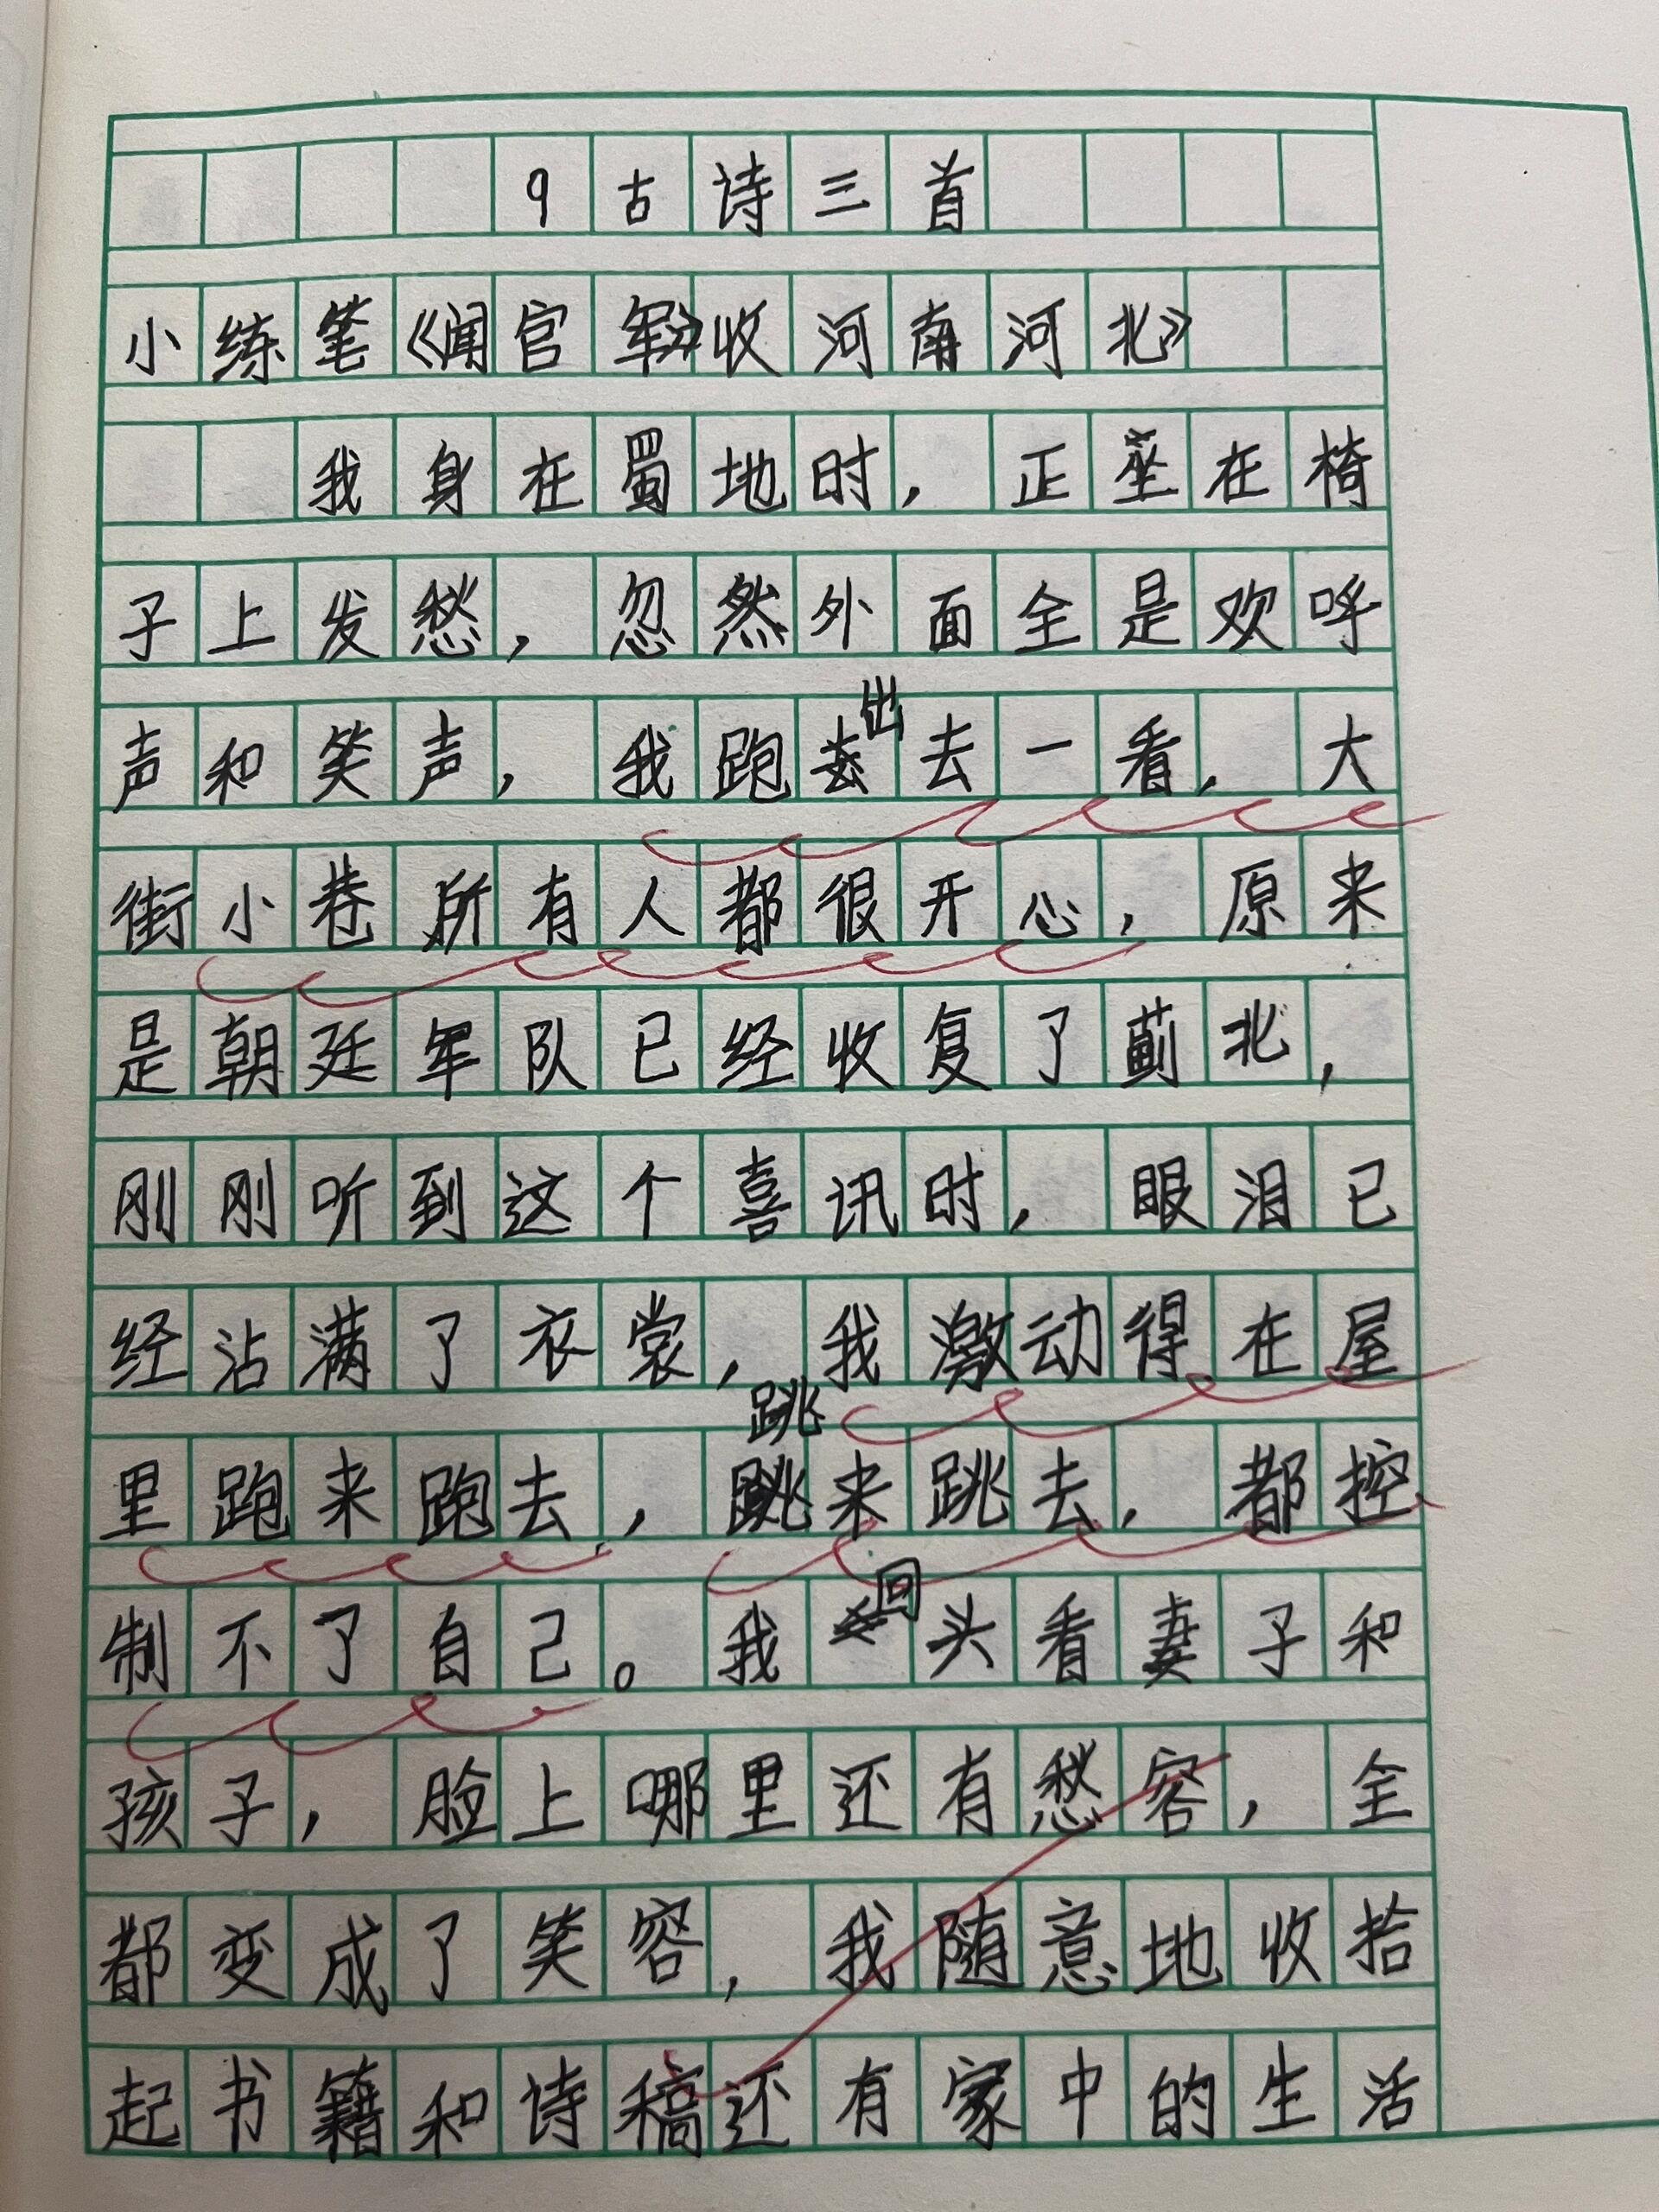 9古诗三首
小练笔《闻官军收河南河北》
我身在蜀地时，正坐在椅
子上发愁，忽然外面全是欢呼
声和笑声，我跑出去一看，大
街小巷所有人都很开心，原来
是朝廷军队已经收复了蓟北，
刚刚听到这个喜讯时，眼泪已
经沾满了衣裳，我激动得在屋
里跑来跑去，跳来跳去，都控
制不了自己。我回头看妻子和
孩子，脸上哪里还有愁容，全
都变成了笑容，我随意地收拾
起书籍和诗稿还有家中的生活